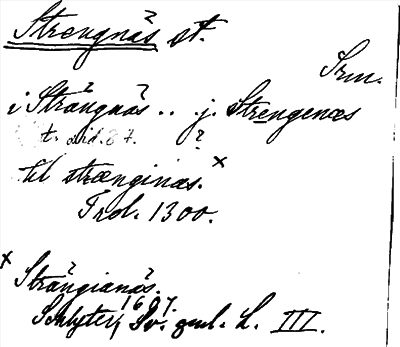 Strengnäs st.
Srm.
i Strängnäs .. j. Strengenæs
t. sid. 87. ?
til strænginæs. x
Frd. 1300.
x Strängianäs.
Schlyter, Sv. gml. L. III. 1607.